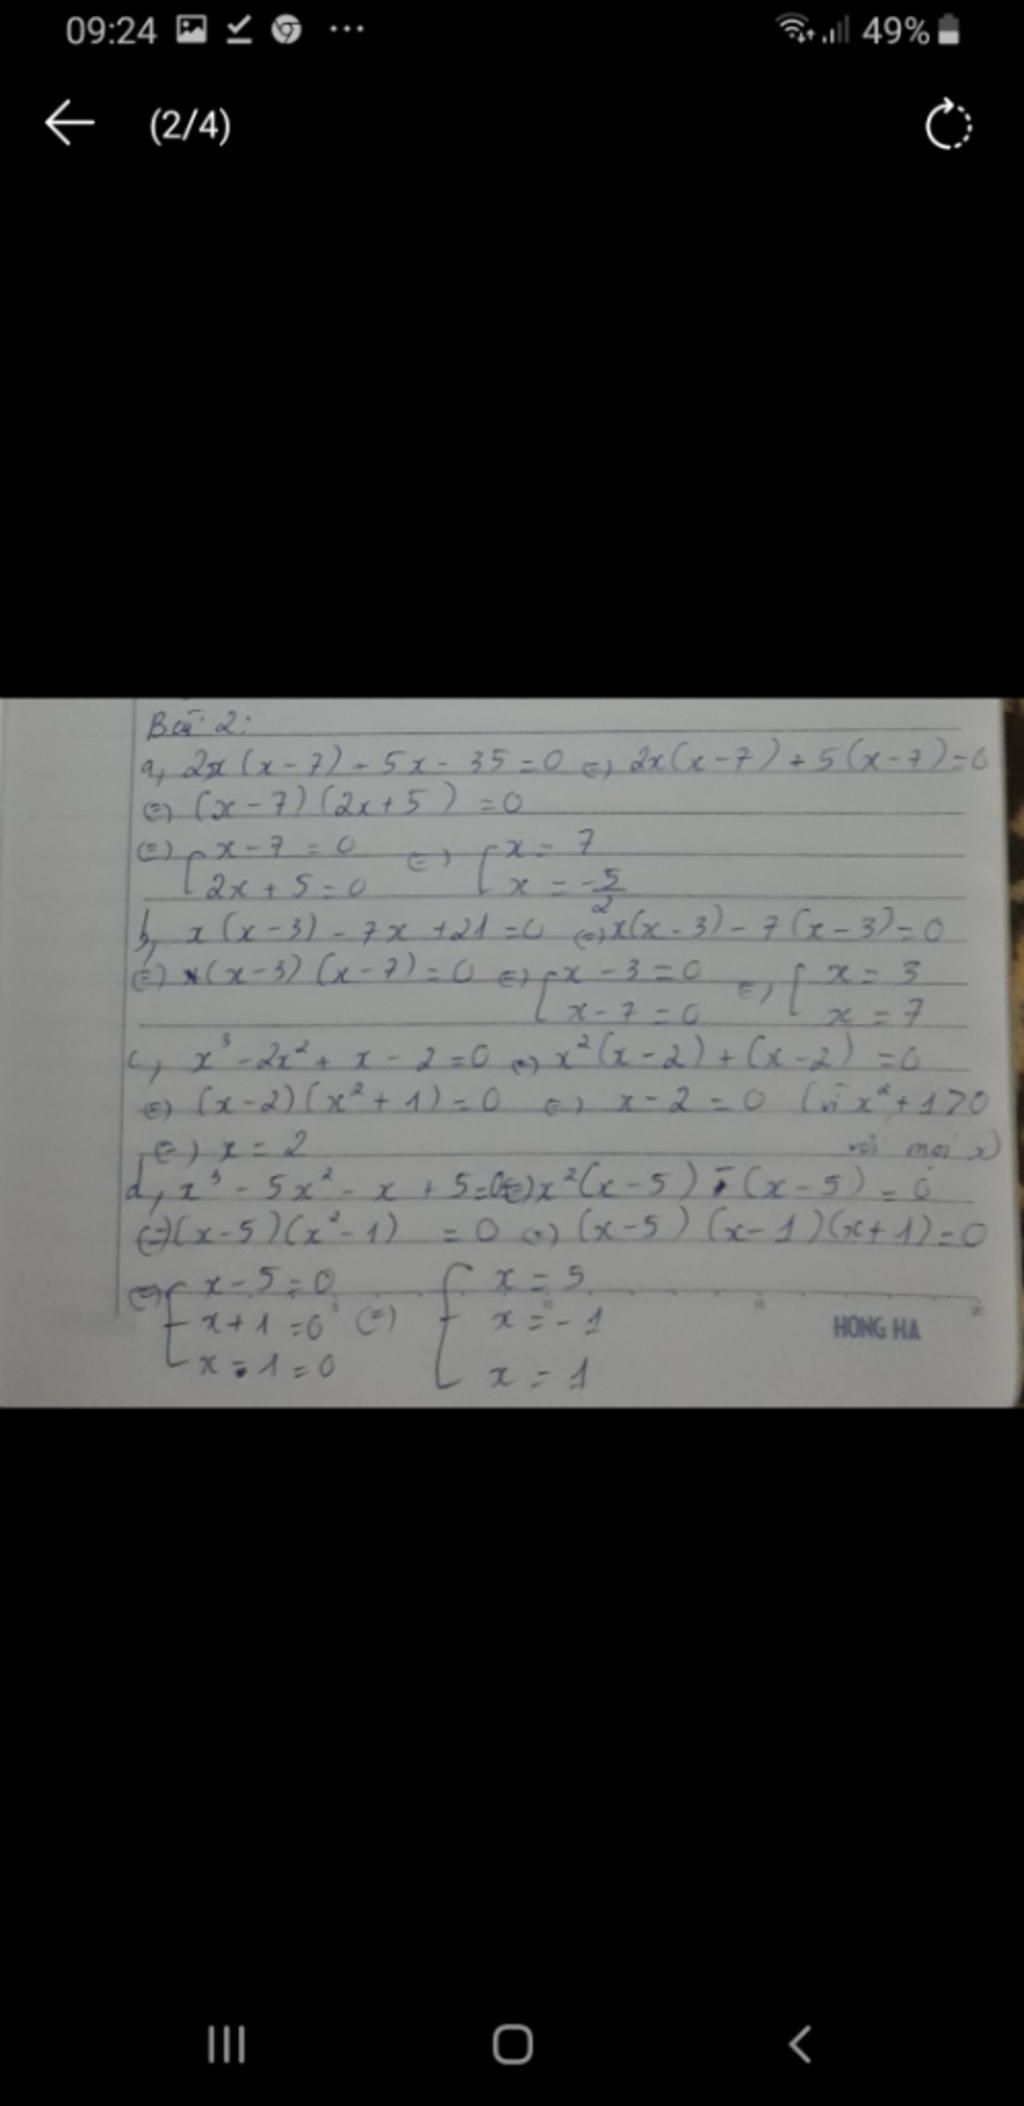 09:24 ... 49%
(2/4)
Bài 2:
a, 2x(x-7) + 5x - 35 = 0 (=) 2x(x-7) + 5(x-7) = 0
(=) (x-7)(2x+5) = 0
(=) [ x-7 = 0 (=) [ x = 7
2x + 5 = 0 x = -5/2
b, x(x-3) - 7x + 21 = 0 (=) x(x-3) - 7(x-3) = 0
(=) (x-3)(x-7) = 0 (=) [ x-3 = 0 (=) [ x = 3
x-7 = 0 x = 7
c, x³ - 2x² + x - 2 = 0 (=) x²(x-2) + (x-2) = 0
(=) (x-2)(x²+1) = 0 (=) x-2 = 0 (vì x²+1>0
(=) x = 2 với mọi x)
d, x³ - 5x² - x + 5 = 0 (=) x²(x-5) - (x-5) = 0
(=) (x-5)(x²-1) = 0 (=) (x-5)(x-1)(x+1) = 0
(=) [ x-5 = 0 [ x = 5
x+1 = 0 (=) x = -1
x-1 = 0 x = 1
HONG HA